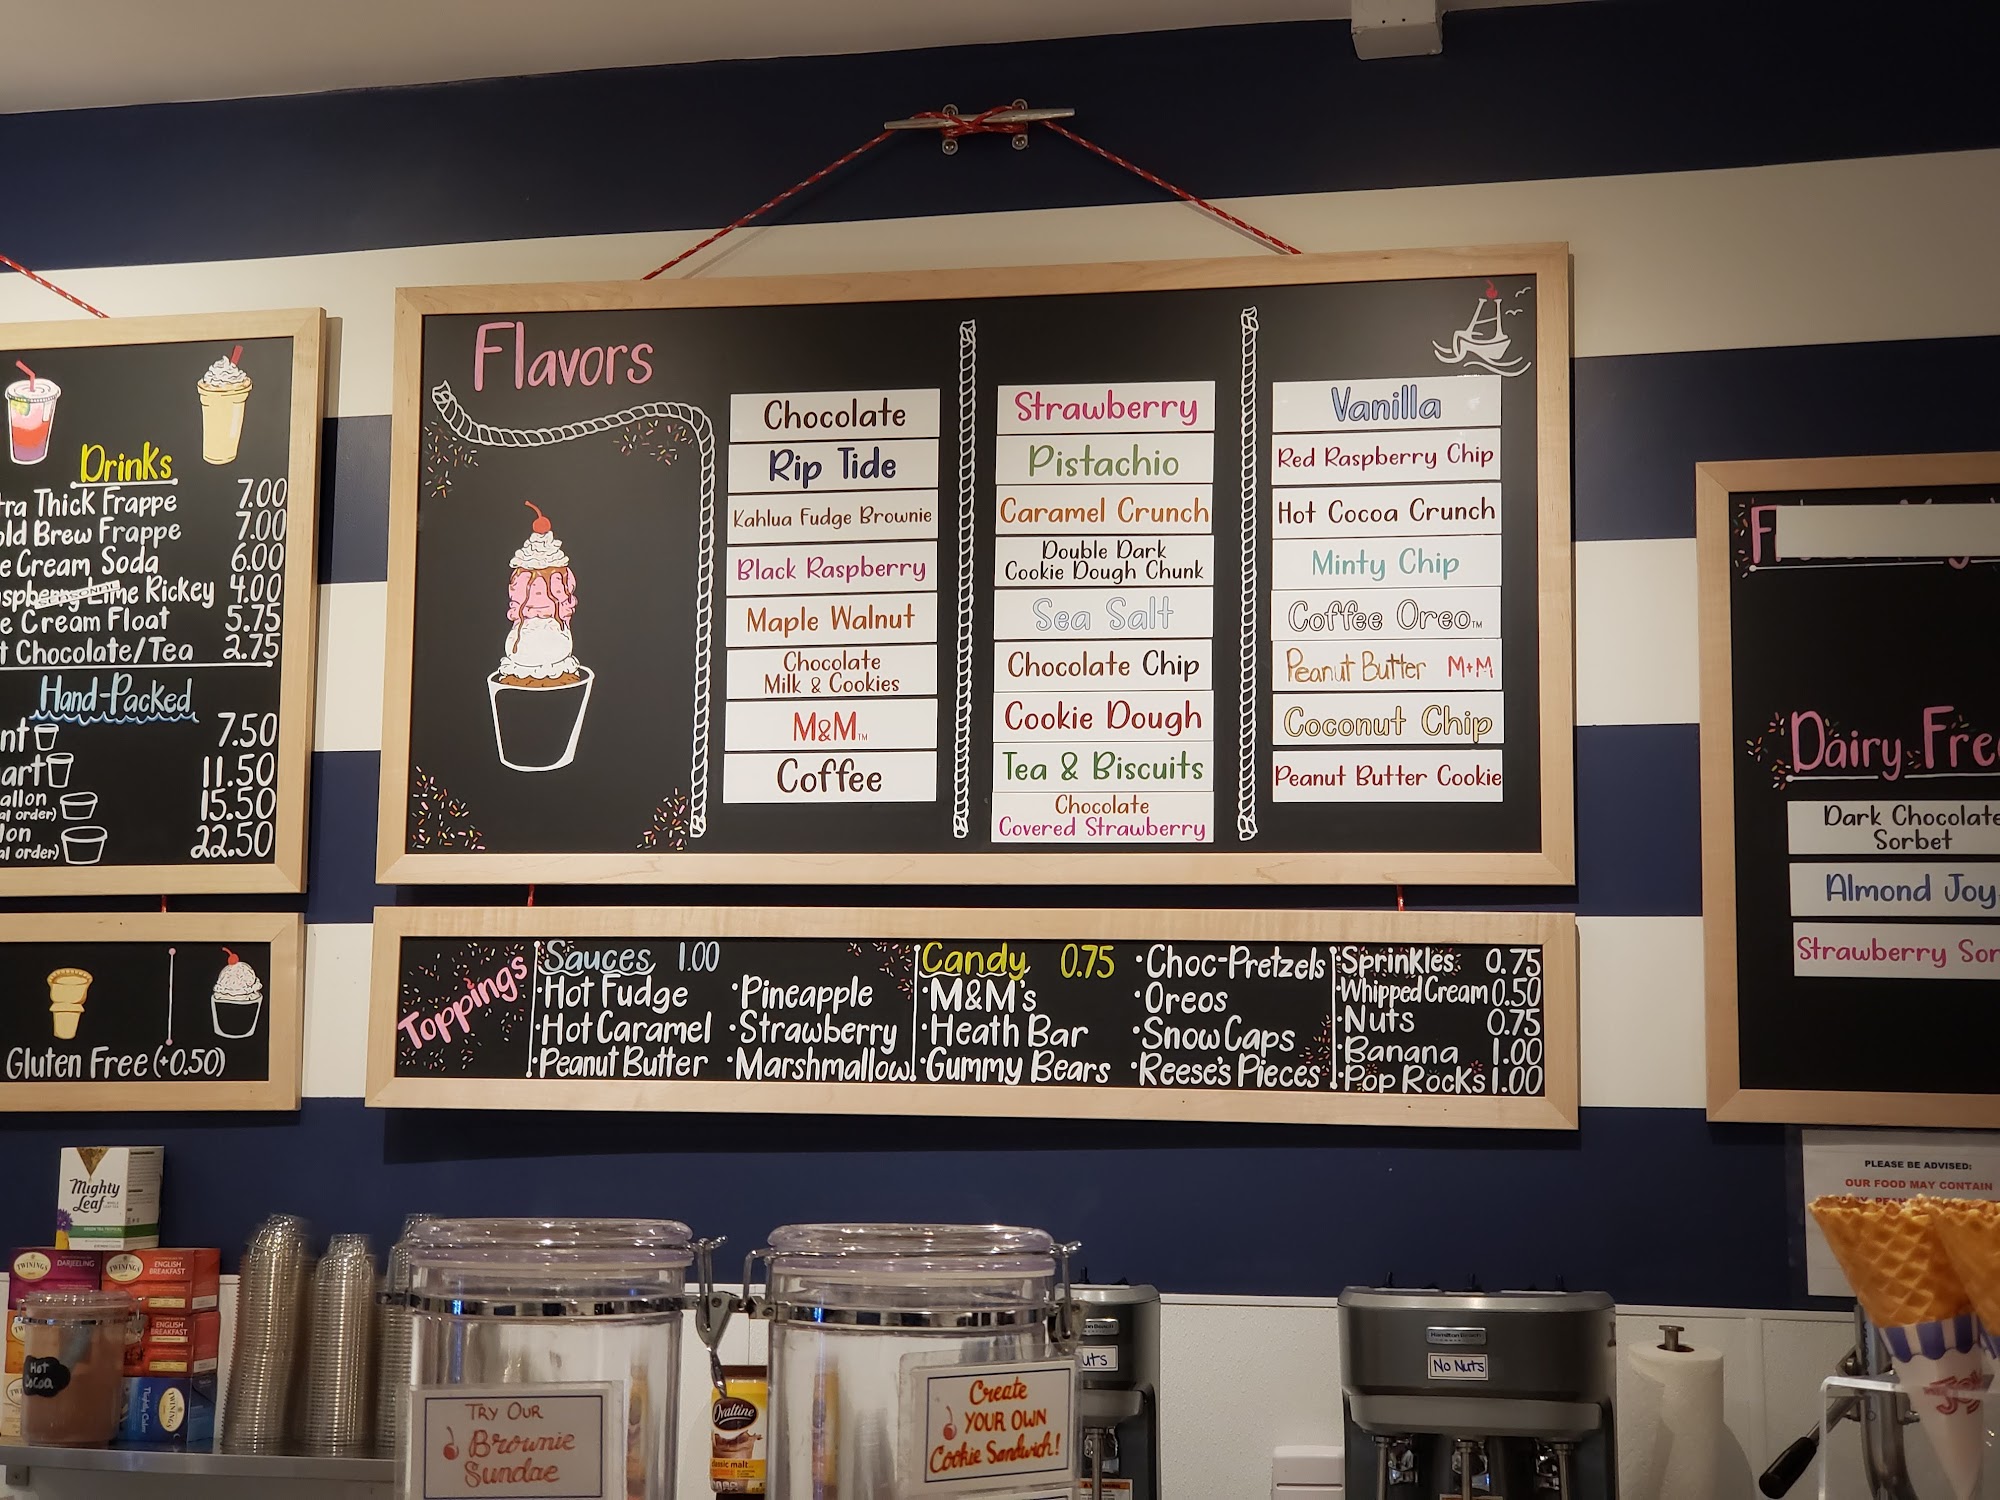 Drinks
Thick Frappe 7.00
Brew Frappe 7.00
Cream Soda 6.00
Rickey 4.00
Cream Float 5.75
Chocolate/Tea 2.75
Hand-Packed
7.50
11.50
15.50
order)
22.50
order)
Gluten Free (+0.50)
Flavors
Chocolate
Rip Tide
Kahlua Fudge Brownie
Black Raspberry
Maple Walnut
Chocolate
Milk & Cookies
M&M™
Coffee
Strawberry
Pistachio
Caramel Crunch
Double Dark
Cookie Dough Chunk
Sea Salt
Chocolate Chip
Cookie Dough
Tea & Biscuits
Chocolate
Covered Strawberry
Vanilla
Red Raspberry Chip
Hot Cocoa Crunch
Minty Chip
Coffee Oreo™
Peanut Butter M+M
Coconut Chip
Peanut Butter Cookie
Toppings
Sauces 1.00
•Hot Fudge
•Hot Caramel
•Peanut Butter
•Pineapple
•Strawberry
•Marshmallow
Candy 0.75
•M&M's
•Heath Bar
•Gummy Bears
•Choc-Pretzels
•Oreos
•Snow Caps
•Reese's Pieces
•Sprinkles 0.75
•Whipped Cream 0.50
•Nuts 0.75
•Banana 1.00
•Pop Rocks 1.00
Dairy
Dark Chocolate
Sorbet
Almond Joy
Strawberry
PLEASE BE ADVISED:
OUR FOOD MAY CONTAIN
Mighty
Leaf
TWININGS
DARJEELING
TWININGS
ENGLISH
BREAKFAST
ENGLISH
BREAKFAST
TWININGS
Hot
Cocoa
TRY OUR
Brownie
Sundae
Ovaltine
classic malt
Create
YOUR OWN
Cookie Sandwich!
Hamilton Beach
No Nuts